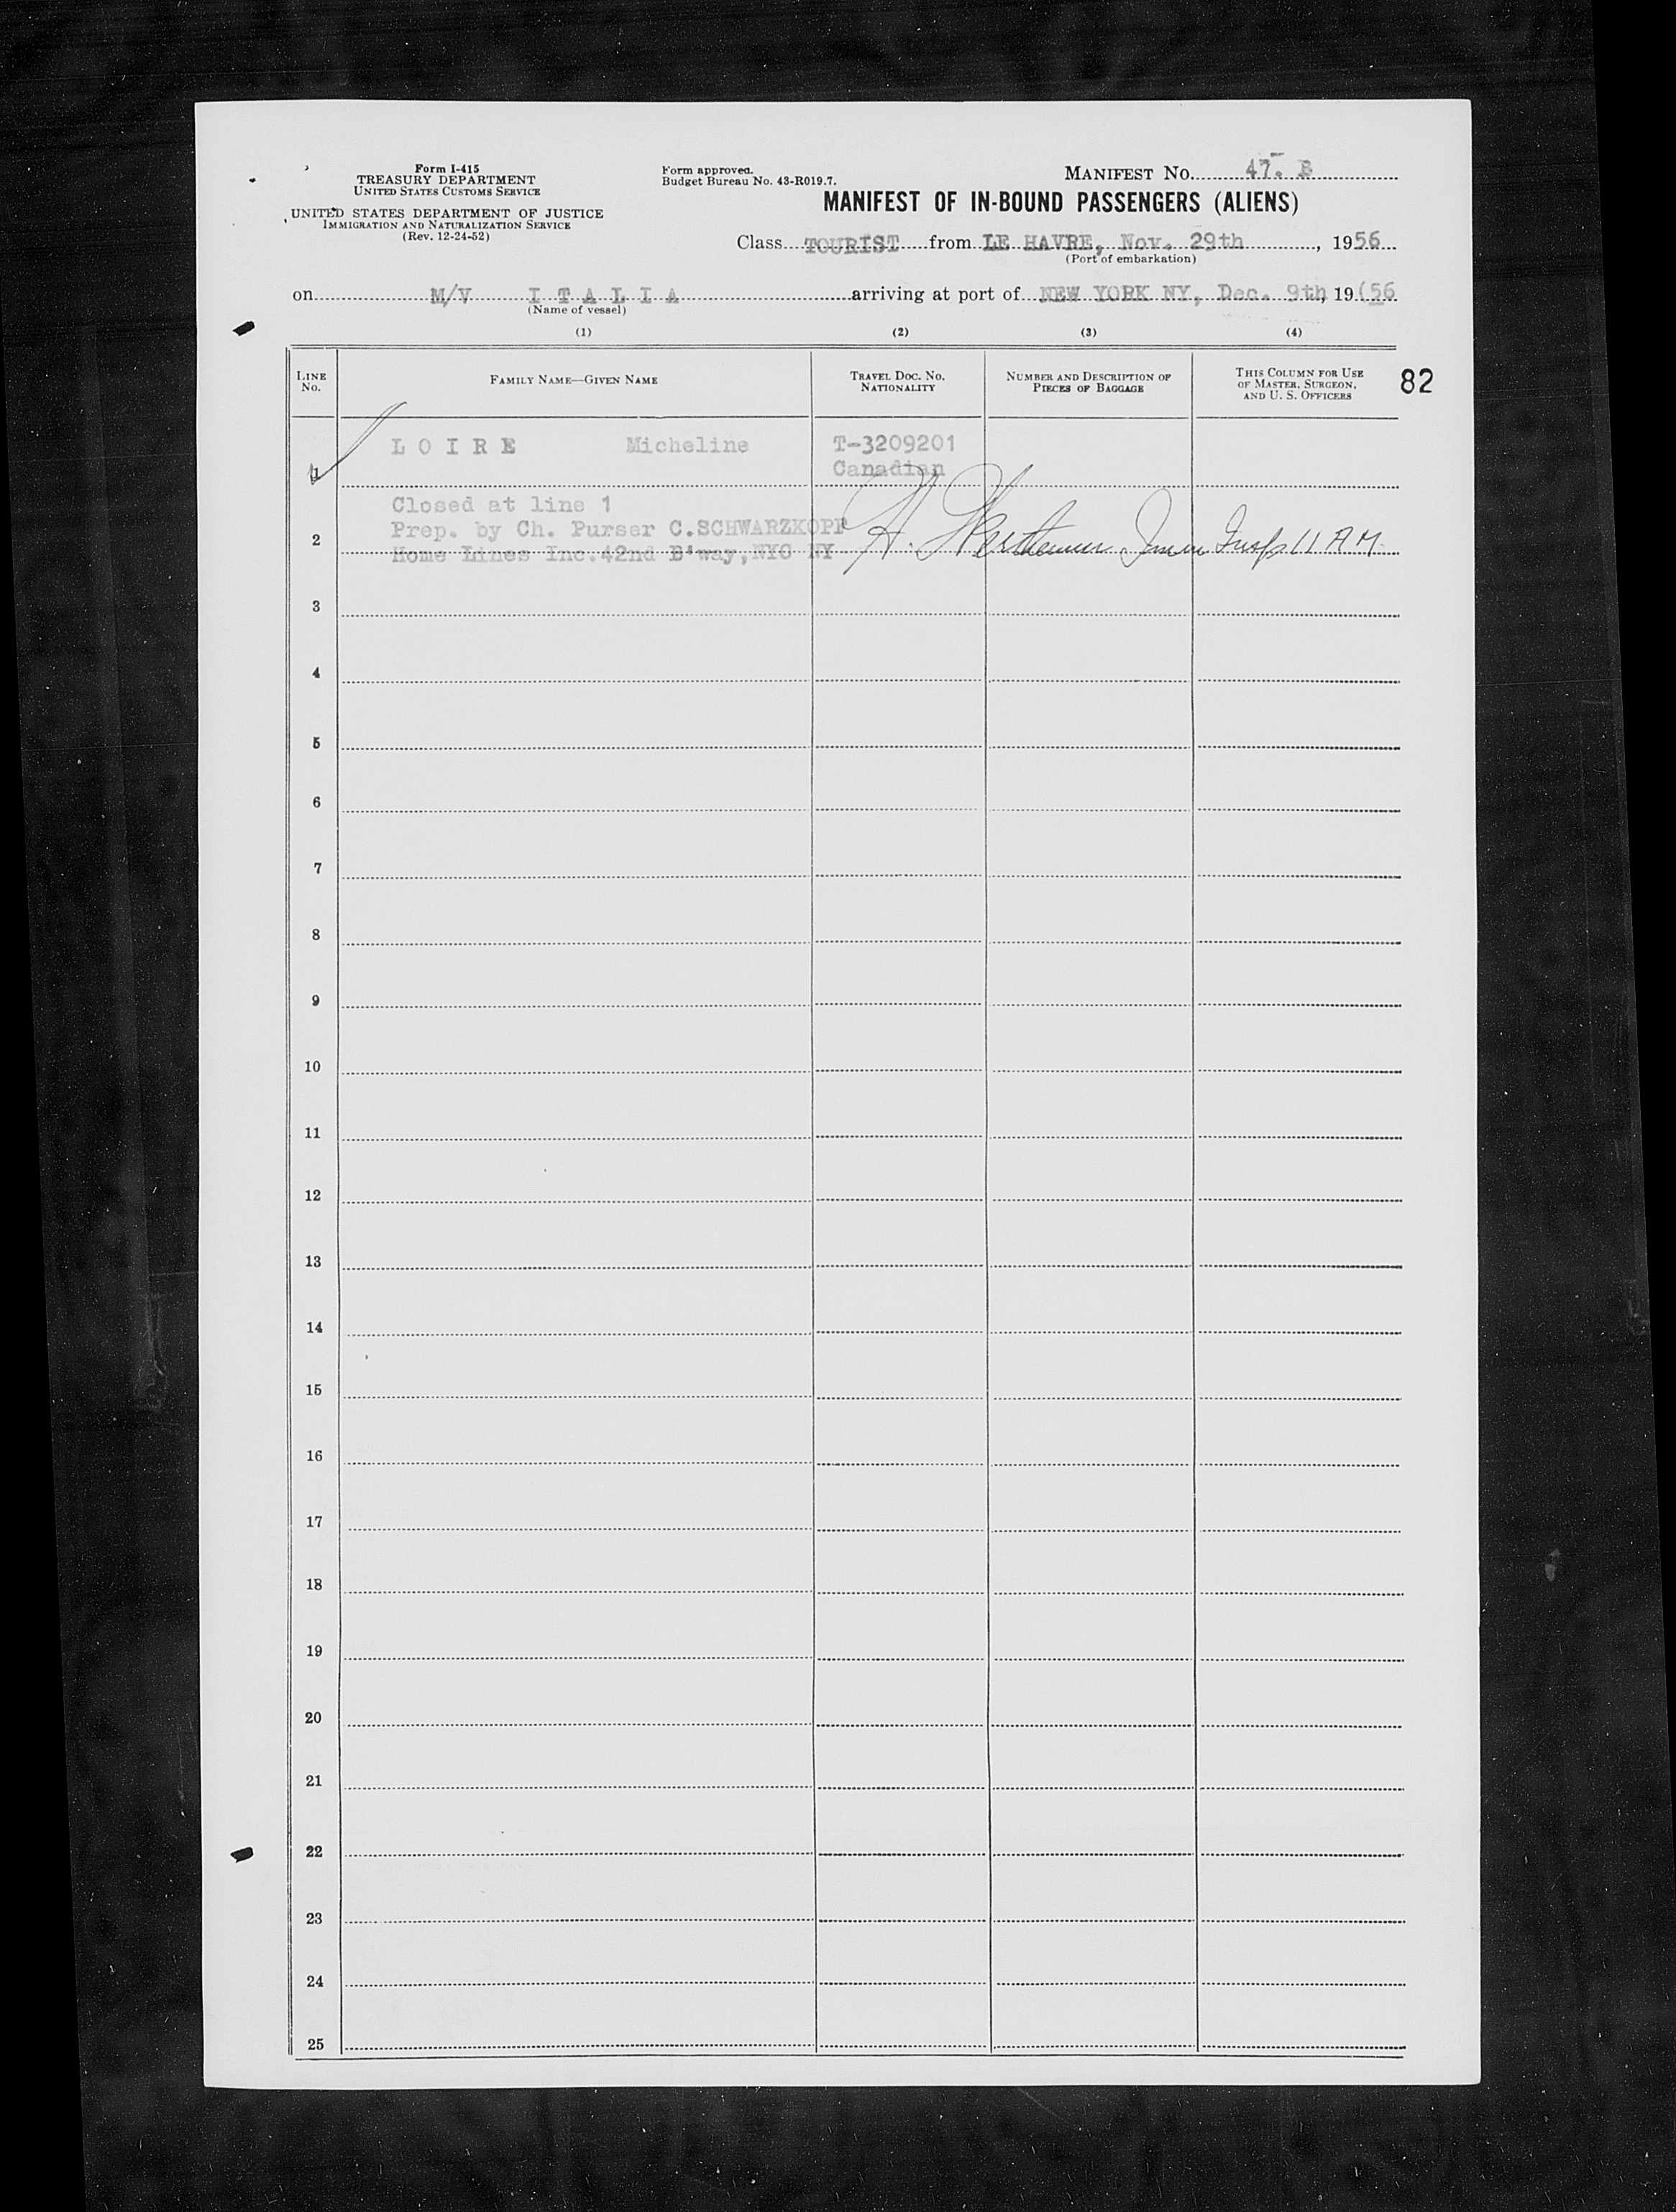 Form I-415
TREASURY DEPARTMENT
UNITED STATES CUSTOMS SERVICE
UNITED STATES DEPARTMENT OF JUSTICE
IMMIGRATION AND NATURALIZATION SERVICE
(Rev. 12-24-52)
Form approved.
Budget Bureau No. 43-R019.7.
MANIFEST NO. 47. B
MANIFEST OF IN-BOUND PASSENGERS (ALIENS)
Class TOURIST from LE HAVRE, Nov. 29th, 1956
(Port of embarkation)
on M/V I T A L I A arriving at port of NEW YORK NY, Dec. 9th, 19(56
(Name of vessel)
(1) (2) (3) (4)
LINE NO. FAMILY NAME—GIVEN NAME TRAVEL DOC. NO. NATIONALITY NUMBER AND DESCRIPTION OF PIECES OF BAGGAGE THIS COLUMN FOR USE OF MASTER, SURGEON, AND U. S. OFFICERS 82
1 L O I R E Micheline T-3209201
Canadian
Closed at line 1
2 Prep. by Ch. Purser C.SCHWARZKOPF H. Immn Insp 11 AM
Home Lines Inc.42nd B'way,NYC NY
3
4
5
6
7
8
9
10
11
12
13
14
15
16
17
18
19
20
21
22
23
24
25